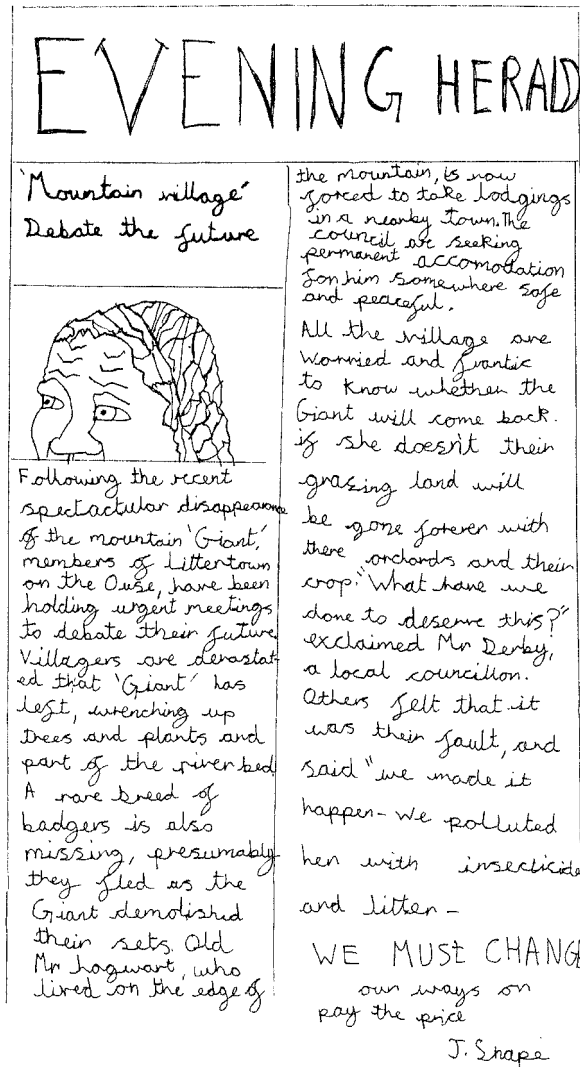 EVENING HERALD
'Mountain village'
Debate the future
Following the recent
spectactular disappearance
of the mountain 'Giant,'
members of Littertown
on the Ouse, have been
holding urgent meetings
to debate their future.
Villagers are devastat-
ed that 'Giant' has
left, wrenching up
trees and plants and
part of the river bed
A rare breed of
badgers is also
missing, presumably
they fled as the
Giant demolished
their sets. Old
Mr hogwart, who
lived on the edge of
the mountain, is now
forced to take lodgings
in a nearby town. The
council are seeking
permanent accomodation
for him somewhere safe
and peaceful.
All the village are
worried and frantic
to know whether the
Giant will come back.
if she doesn't their
grazing land will
be gone forever with
there orchards and their
crop. "What have we
done to deserve this?"
exclaimed Mr Derby,
a local councillor.
Others felt that it
was their fault, and
said "we made it
happen - We polluted
her with insecticide
and litter -
WE MUST CHANGE
our ways or
pay the price
J. Snape